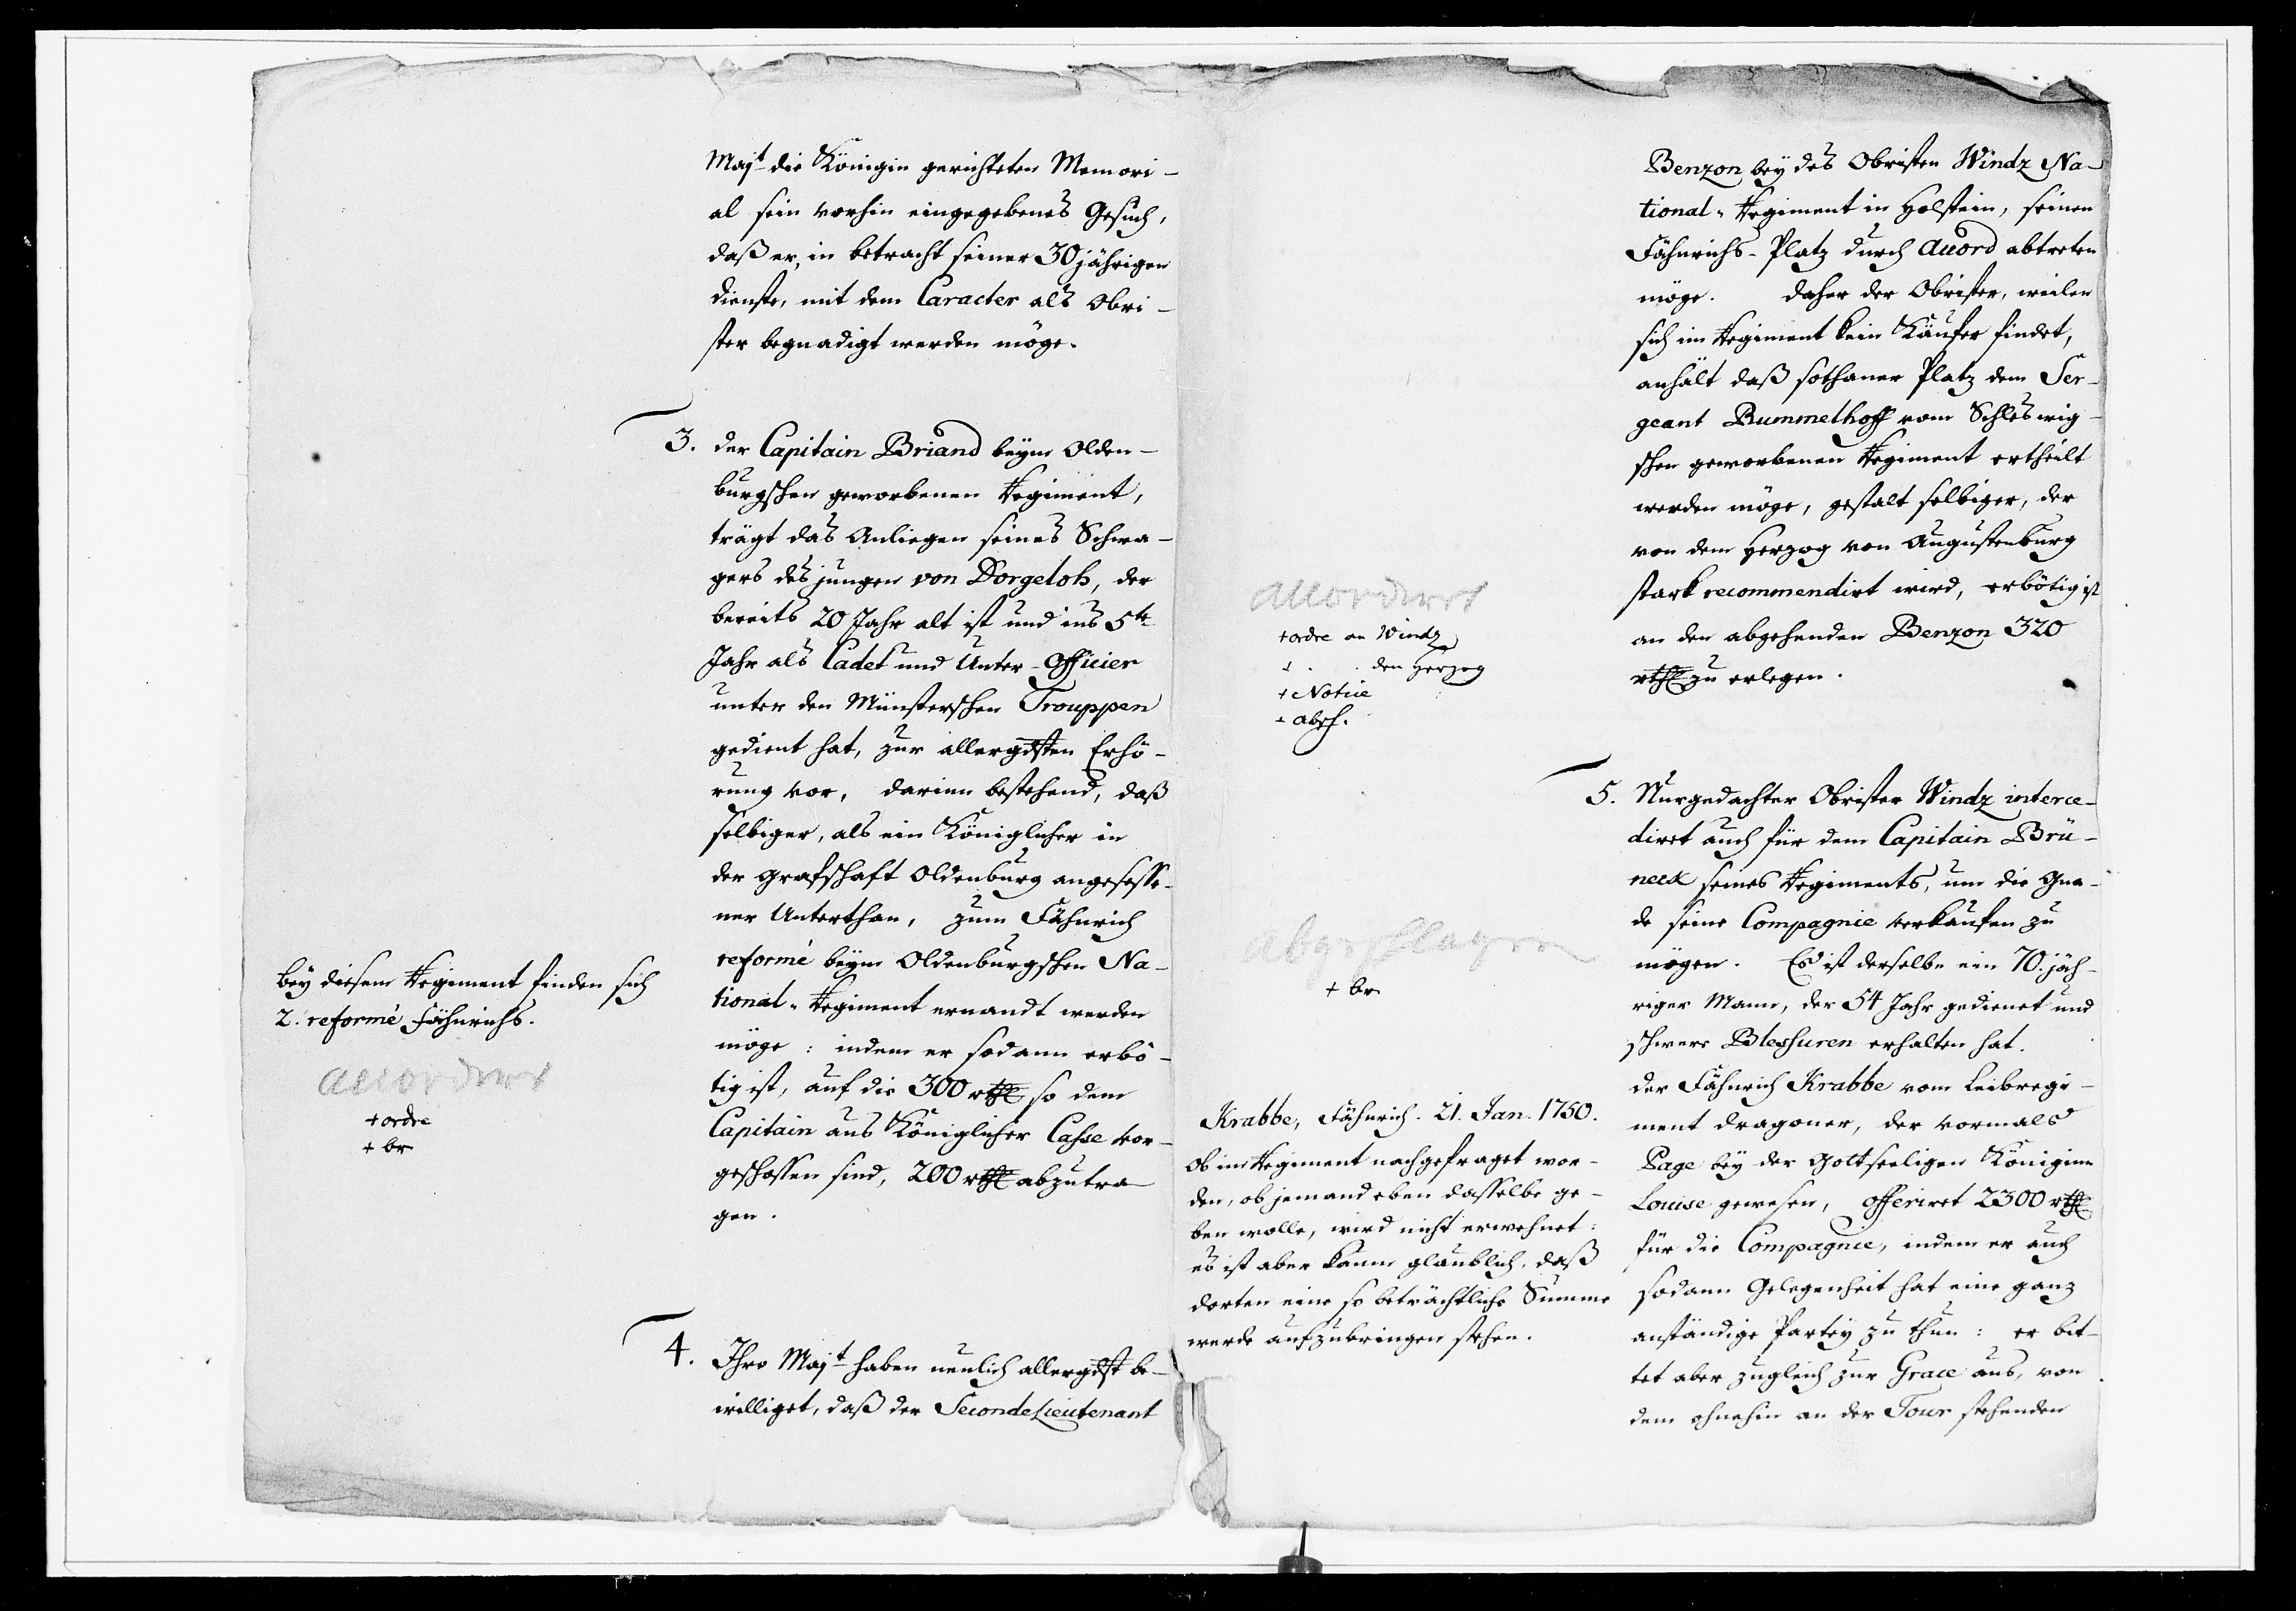 Majt die Königin gerichteten Memori-
al sein vorhin eingegebenes Gesuch,
daß er, in betracht seiner 30 jährigen
dienste, mit dem Caracter als Obri-
ster begnadigt werden möge.
3. der Capitain Briand beym Olden-
burgschen geworbenen Regiment,
trägt das Anliegen seines Schwa-
gers des jungen von Dorgeloh, der
bereits 20 Jahr alt ist und ins 5te
Jahr als Cadet und Unter-Officier
unter den Münsterschen Trouppen
gedient hat, zur allergdsten Erhö-
rung vor, darinn bestehend, daß
selbiger, als ein Königlicher in
der Grafschaft Oldenburg angesesse-
ner Unterthan, zum Fähnrich
reformé beym Oldenburgschen Na-
tional-Regiment ernandt werden
möge: indem er sodann erbö-
tig ist, auf die 300 rthl so dem
Capitain aus Königlicher Casse vor-
geschossen sind, 200 rthl abzutra-
gen.
bey diesem Regiment finden sich
2. reformé Fähnrichs.
accordiret
+ ordre
+ br
4. Ihro Majt haben neulich allergdst be-
williget, daß der SecondeLieutenant
Benzon bey des Obristen Windz Na-
tional-Regiment in Holstein, seinen
Fähnrichs-Platz durch Accord abtreten
möge. daher der Obrister, weilen
sich im Regiment kein Käufer findet,
anhält daß sothaner Platz dem Ser-
geant Rummelhoff vom Schleswig-
schen geworbenen Regiment ertheilt
werden möge, gestalt selbiger, der
von dem Herzog von Augustenburg
stark recommendirt wird, erbötig ist
an den abgehenden Benzon 320
rthl zu erlegen.
accordiret
+ ordre an Windz
+ . . den Herzog
+ Notice
+ absch.
5. Nurgedachter Obrister Windz interce-
diret auch für dem Capitain Brü-
neck seines Regiments, um die Gna-
de seine Compagnie verkaufen zu
mögen. Es ist derselbe ein 70. jäh-
riger Mann, der 54 Jahr gedienet und
schwere Blessuren erhalten hat.
der Fähnrich Krabbe vom Leibregi-
ment dragoner, der vormals
Page bey der Gottseeligen Königinn
Louise gewesen, offeriret 2300 rthl
für die Compagnie, indem er auch
sodann Gelegenheit hat eine ganz
anständige Partey zu thun: er bit-
tet aber zugleich zur Grace aus, von
dem ohnehin an der Tour stehenden
abgeschlagen
+ br
Krabbe, Fähnrich. 21. Jan. 1750.
Ob im Regiment nachgefraget wor-
den, ob jemand eben dasselbe ge-
ben wolle, wird nicht erwehnet:
es ist aber kaum glaublich, daß
dorten eine so beträchtliche Summe
werde aufzubringen stehen.